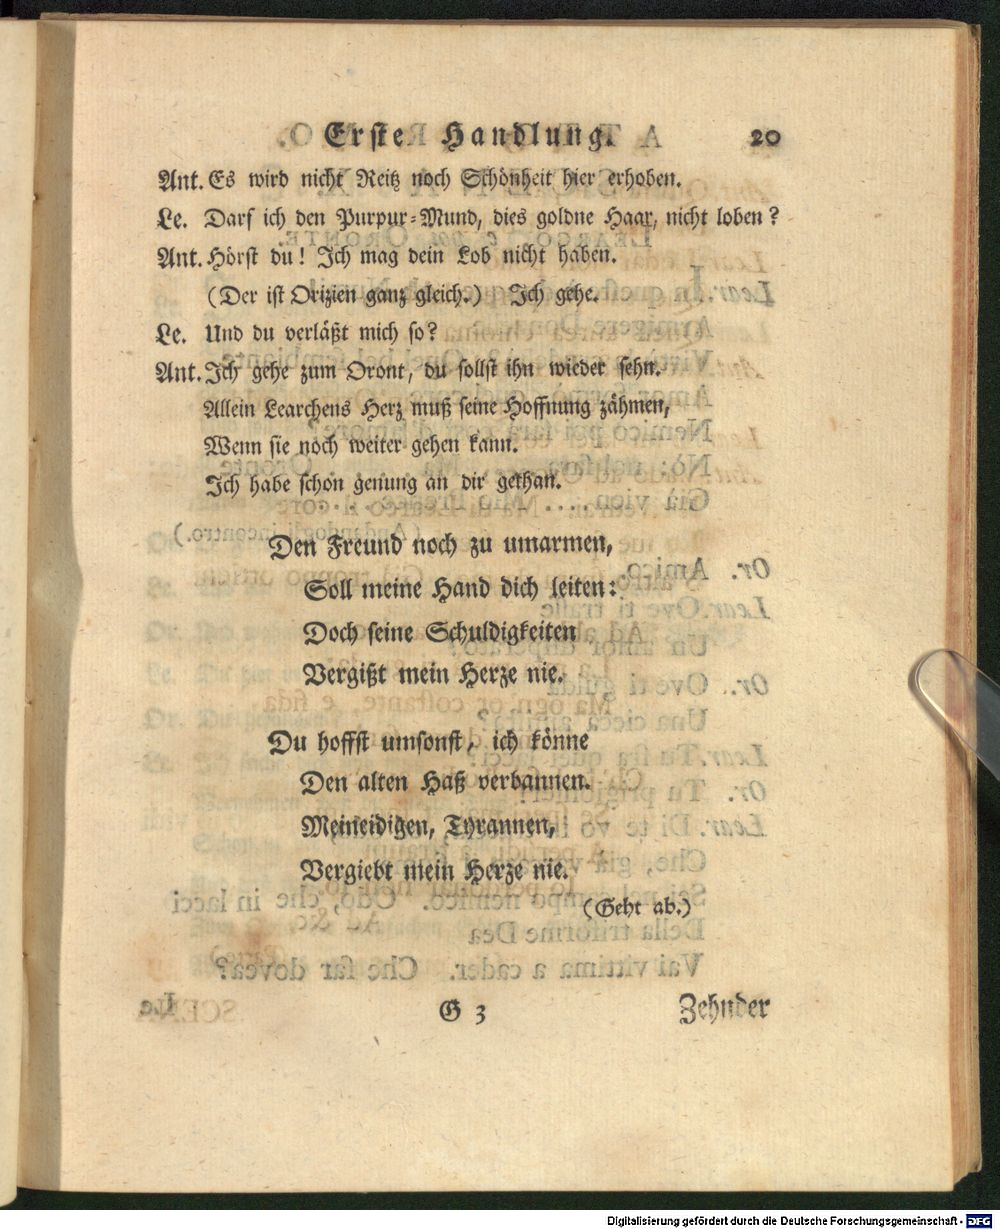 Erste Handlung. 20
Ant. Es wird nicht Reitz noch Schönheit hier erhoben.
Le. Darf ich den Purpur-Mund, dies goldne Haar, nicht loben?
Ant. Hörst du! Ich mag dein Lob nicht haben.
(Der ist Orizien ganz gleich.) Ich gehe.
Le. Und du verläßt mich so?
Ant. Ich gehe zum Oront, du sollst ihn wieder sehn.
Allein Learchens Herz muß seine Hoffnung zähmen,
Wenn sie noch weiter gehen kann.
Ich habe schon genung an dir gethan.
Den Freund noch zu umarmen,
Soll meine Hand dich leiten:
Doch seine Schuldigkeiten
Vergißt mein Herze nie.
Du hoffst umsonst, ich könne
Den alten Haß verbannen.
Meineidigen, Tyrannen,
Vergiebt mein Herze nie.
(Geht ab.)
G 3 Zehnder
Digitalisierung gefördert durch die Deutsche Forschungsgemeinschaft - DFG